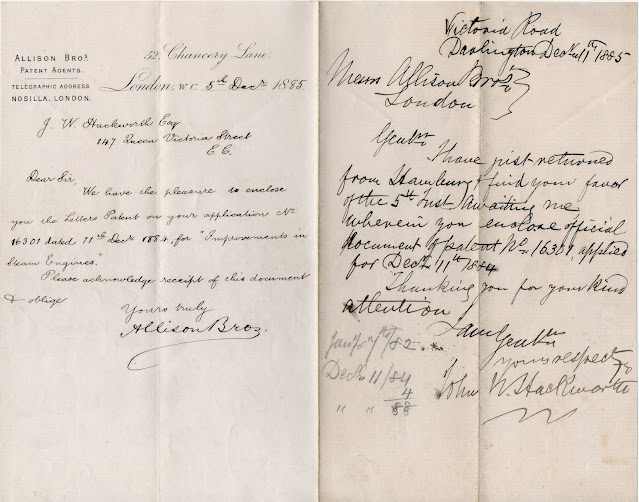 ALLISON BROS.
PATENT AGENTS.
TELEGRAPHIC ADDRESS
NOSILLA, LONDON.
52, Chancery Lane,
London, W.C. 5th Decr 1885
J. W. Hackworth Esq
147 Queen Victoria Street
E.C.
Dear Sir,
We have the pleasure to enclose
you the Letters Patent on your application No
16301 dated 11th Decr 1884 for "Improvements in
Steam Engines."
Please acknowledge receipt of this document
& oblige
Yours truly
Allison Bros.
Victoria Road
Darlington Decr 11th 1885
Messrs Allison Bros
London
Gentn
I have just returned
from Hamburg & find your favor
of the 5th inst awaiting me,
wherein you enclose official
document of patent No 16301, applied
for Decr 11th 1884
Thanking you for your kind
attention
I am Gentn
yours respectly
John W. Hackworth
7th/82
Decr 11/84
4
" " 88